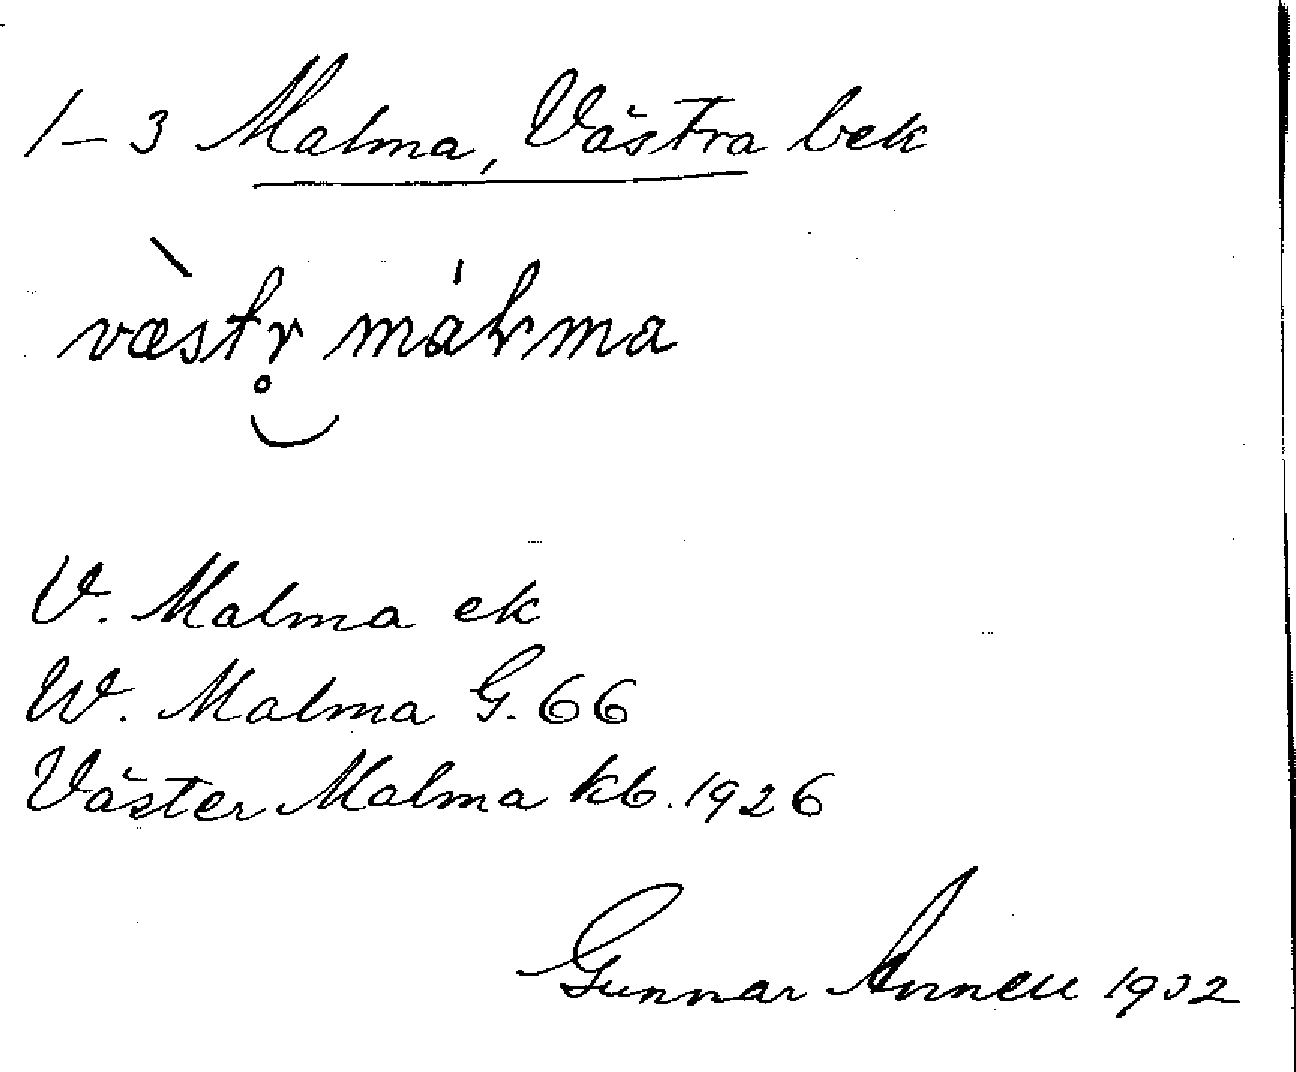 1–3 Malma, Västra bek
væstr̥ málma
V. Malma ek
W. Malma G. 66
Väster Malma kb. 1926
Gunnar 1932